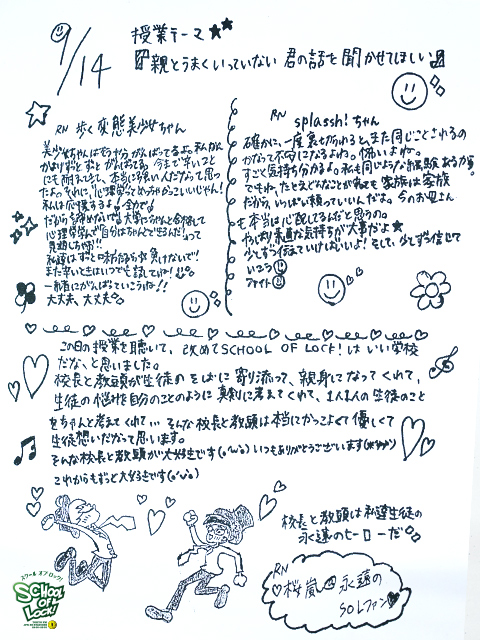 9/14
授業テーマ★★
『親とうまくいっていない 君の話を聞かせてほしい』
RN 歩く変態美少女ちゃん
美少女ちゃんはもう十分がんばってるよ。私なんか
にも耐えてきて、本当に強い人だなって思っ
たよ。それに、心理学ってめっちゃかっこいいじゃん!
私は応援するよ!全力で!
だから諦めないで!!大学にちゃんと合格して
心理学学んで「自分はちゃんとできるんだ」って
見返しちゃお!!
私達はずっと味方だから負けないで!!
また辛いときはいつでも話してね!
一緒にがんばっていこうね!!
大丈夫、大丈夫。
RN splassh!ちゃん
確かに、一度裏切られると、また同じことされるの
かなって不安になるよね。怖いよね。
すごく気持ち分かるよ。私も同じような経験あるから。
でもね、たとえどんなことがあっても家族は家族
だから、いっぱい頼っていいんだよ。今のお母さん
も本当は心配してるんだと思うの。
やっぱり素直な気持ちが大事だよ★
少しずつ伝えていけばいいよ!そして、少しずつ信じて
いこう
ファイト
この日の授業を聴いて、改めてSCHOOL OF LOCK!はいい学校
だな、と思いました。
校長と教頭が生徒のそばに寄り添って、親身になってくれて、
生徒の悩みを自分のことのように真剣に考えてくれて、1人1人の生徒のこと
をちゃんと考えてくれて… そんな校長と教頭は本当にかっこよくて優しくて
生徒想いだなって思います。
そんな校長と教頭が大好きです(。'ω'。) いつもありがとうございます
これからもずっと大好きです(。'ω'。)
校長と教頭は私達生徒の
永遠のヒーローだ
RN
♡桜嵐@永遠の
SOLファン♥
スクール オブ ロック!
SCHOOL
OF
LOCK!